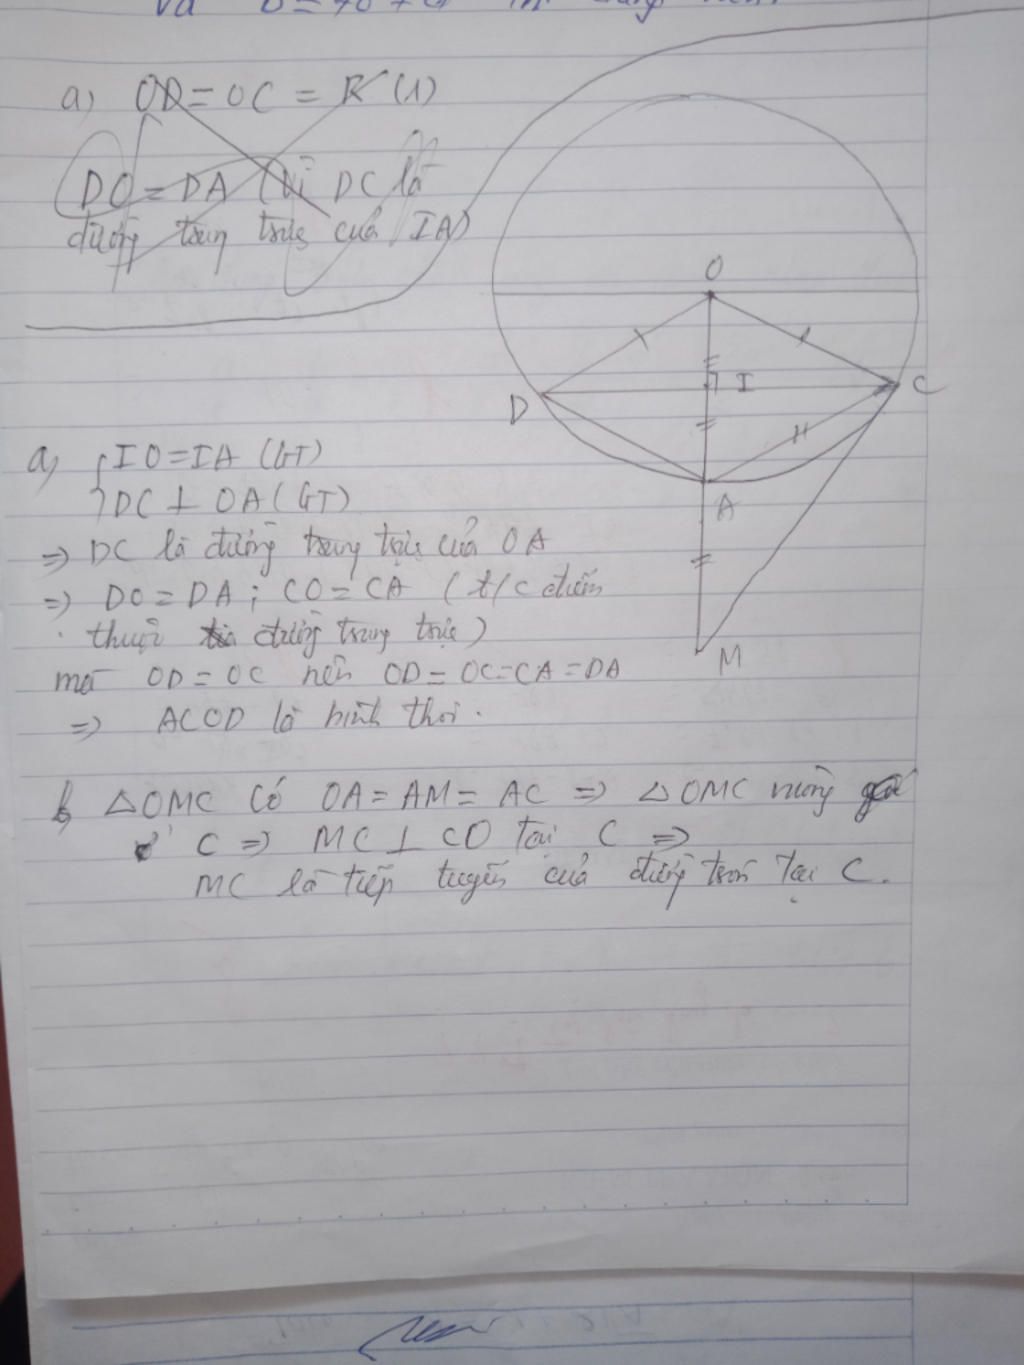 a) OD = OC = R (1)
DO = DA (Vì DC là
đường trung trực của IA)
O
D
I
C
A
M
a, IO = IA (GT)
DC ⊥ OA (GT)
=> DC là đường trung trực của OA
=> DO = DA ; CO = CA ( t/c điểm
thuộc đường trung trực )
mà OD = OC nên OD = OC = CA = DA
=> ACOD là hình thoi .
b, △OMC Có OA = AM = AC => △OMC vuông
ở C => MC ⊥ CO tại C =>
MC là tiếp tuyến của đường tròn tại C.